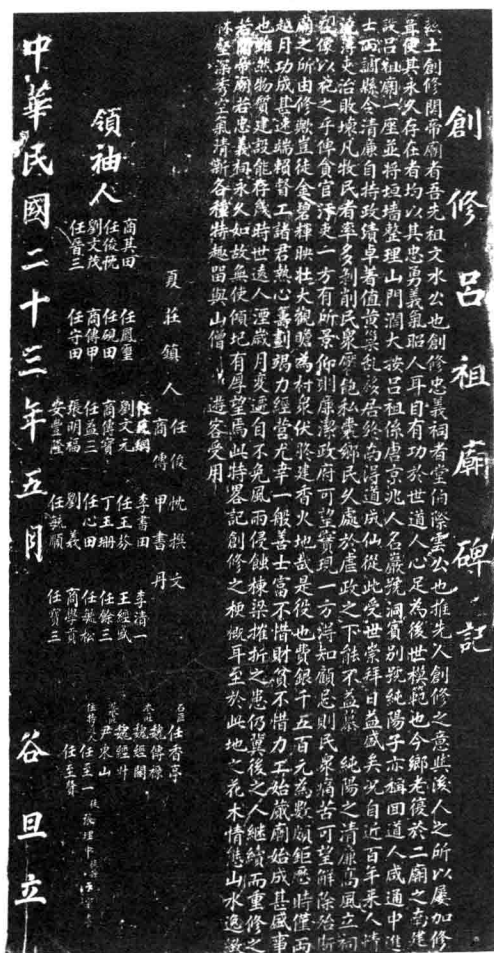 創修呂祖廟碑記
茲土創修関帝廟者吾先祖文水公也創修忠義祠者堂伯際雲公也推先人創修之意與後人之所以屢加修
葺使其永久存在者均以其忠勇義氣昭人耳目有功於世道人心足為後世模範也今鄉老復於二廟之南建
設呂祖廟一座並將垣墙整理山門濶大按呂祖係唐京兆人名巖號洞賓別號純陽子亦稱回道人咸通中進
士両調縣令清廉自持政績卓著值黃巢乱移居終南得道成仙從此受世崇拜日益盛矣况自近百年来人情
澆薄吏治敗壞凡牧民者率多剝削民衆靡飽私囊鄉民久處於虐政之下能不益慕 純陽之清廉高風立祠
設像以祀之乎俾貪官汙吏一方有所景仰則廉潔政府可望實現一方得知顧忌則民衆痛苦可望解除殆斯
廟之所由修歟豈徒金碧輝映壮大觀瞻為村衆伏臘建香火地哉是役也費銀千五百元為數頗鉅歷時僅両
越月功成甚速端賴督工諸君熱心籌劃竭力經營尤幸一般善士富不惜財貧不惜力工始蕆廟始成甚盛事
也雖然物質建設能存幾時世遠人湮歲月變遷自不免風雨侵蝕棟梁摧折之患仍冀後之人継續而重修之
若関帝廟若忠義祠永久如故無使傾圮有厚望焉此特畧記創修之梗概耳至於此地之花木情態山水逸激
林壑深秀空氣清新各種特趣留與山僧 遊客受用
夏莊鎮人
任俊忱撰文
商傳甲書丹
領袖人
商其田
任俊忱
劉文茂
任晋三
任鳳重
任硯田
商傳甲
任守田
劉文元
商傳寳
任益三
張明福
安豊隆
李書田
任玉芬
丁玉珊
任心田
劉義
任毓順
李清一
王經盛
任餘三
任毓松
商學貢
任寳三
石匠
任香亭
魏傳祿
魏經閣
魏經卄
尹東山
住持人
任至一
任至修
中華民國二十三年五月
谷旦立